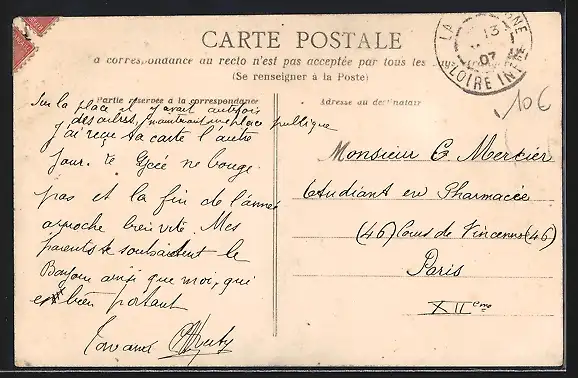 CARTE POSTALE
a correspondance au recto n'est pas acceptée par tous les
(Se renseigner à la Poste)
Partie réservée à la correspondance
Adresse au destinataire
LA
13
07
LOIRE INFRE
10€
Sur la place il y avait autrefois
des arbres, maintenant une place publique
j'ai reçu ta carte l'autre
jour. le Lycée ne bouge
pas et la fin de l'année
approche bien vite. Mes
parents te souhaitent le
Bonjour ainsi que moi, qui
est bien portant
Ton ami
Monsieur E. Mercier
Etudiant en Pharmacie
(46) Cours de Vincennes (46)
Paris
XIIeme